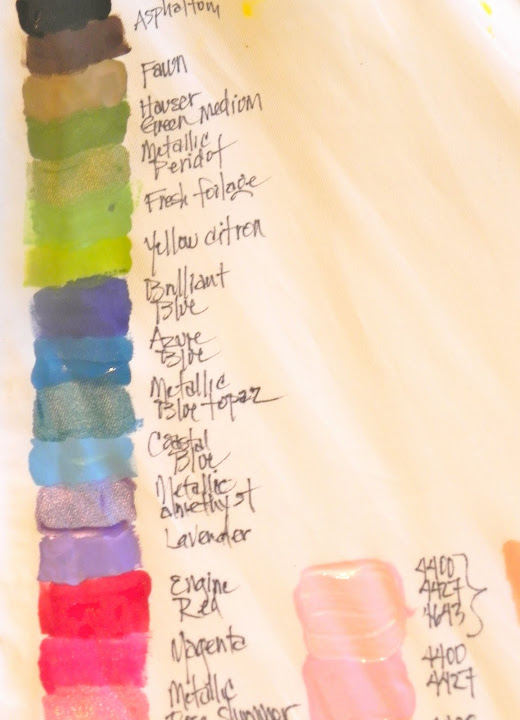 Asphaltum
Fawn
Hauser
Green Medium
Metallic
Peridot
Fresh foilage
Yellow citron
Brilliant
Blue
Azure
Blue
Metallic
Blue topaz
Coastal
Blue
Metallic
amethyst
Lavender
Engine
Red
Magenta
Metallic
4400
4427
4643
4400
4427